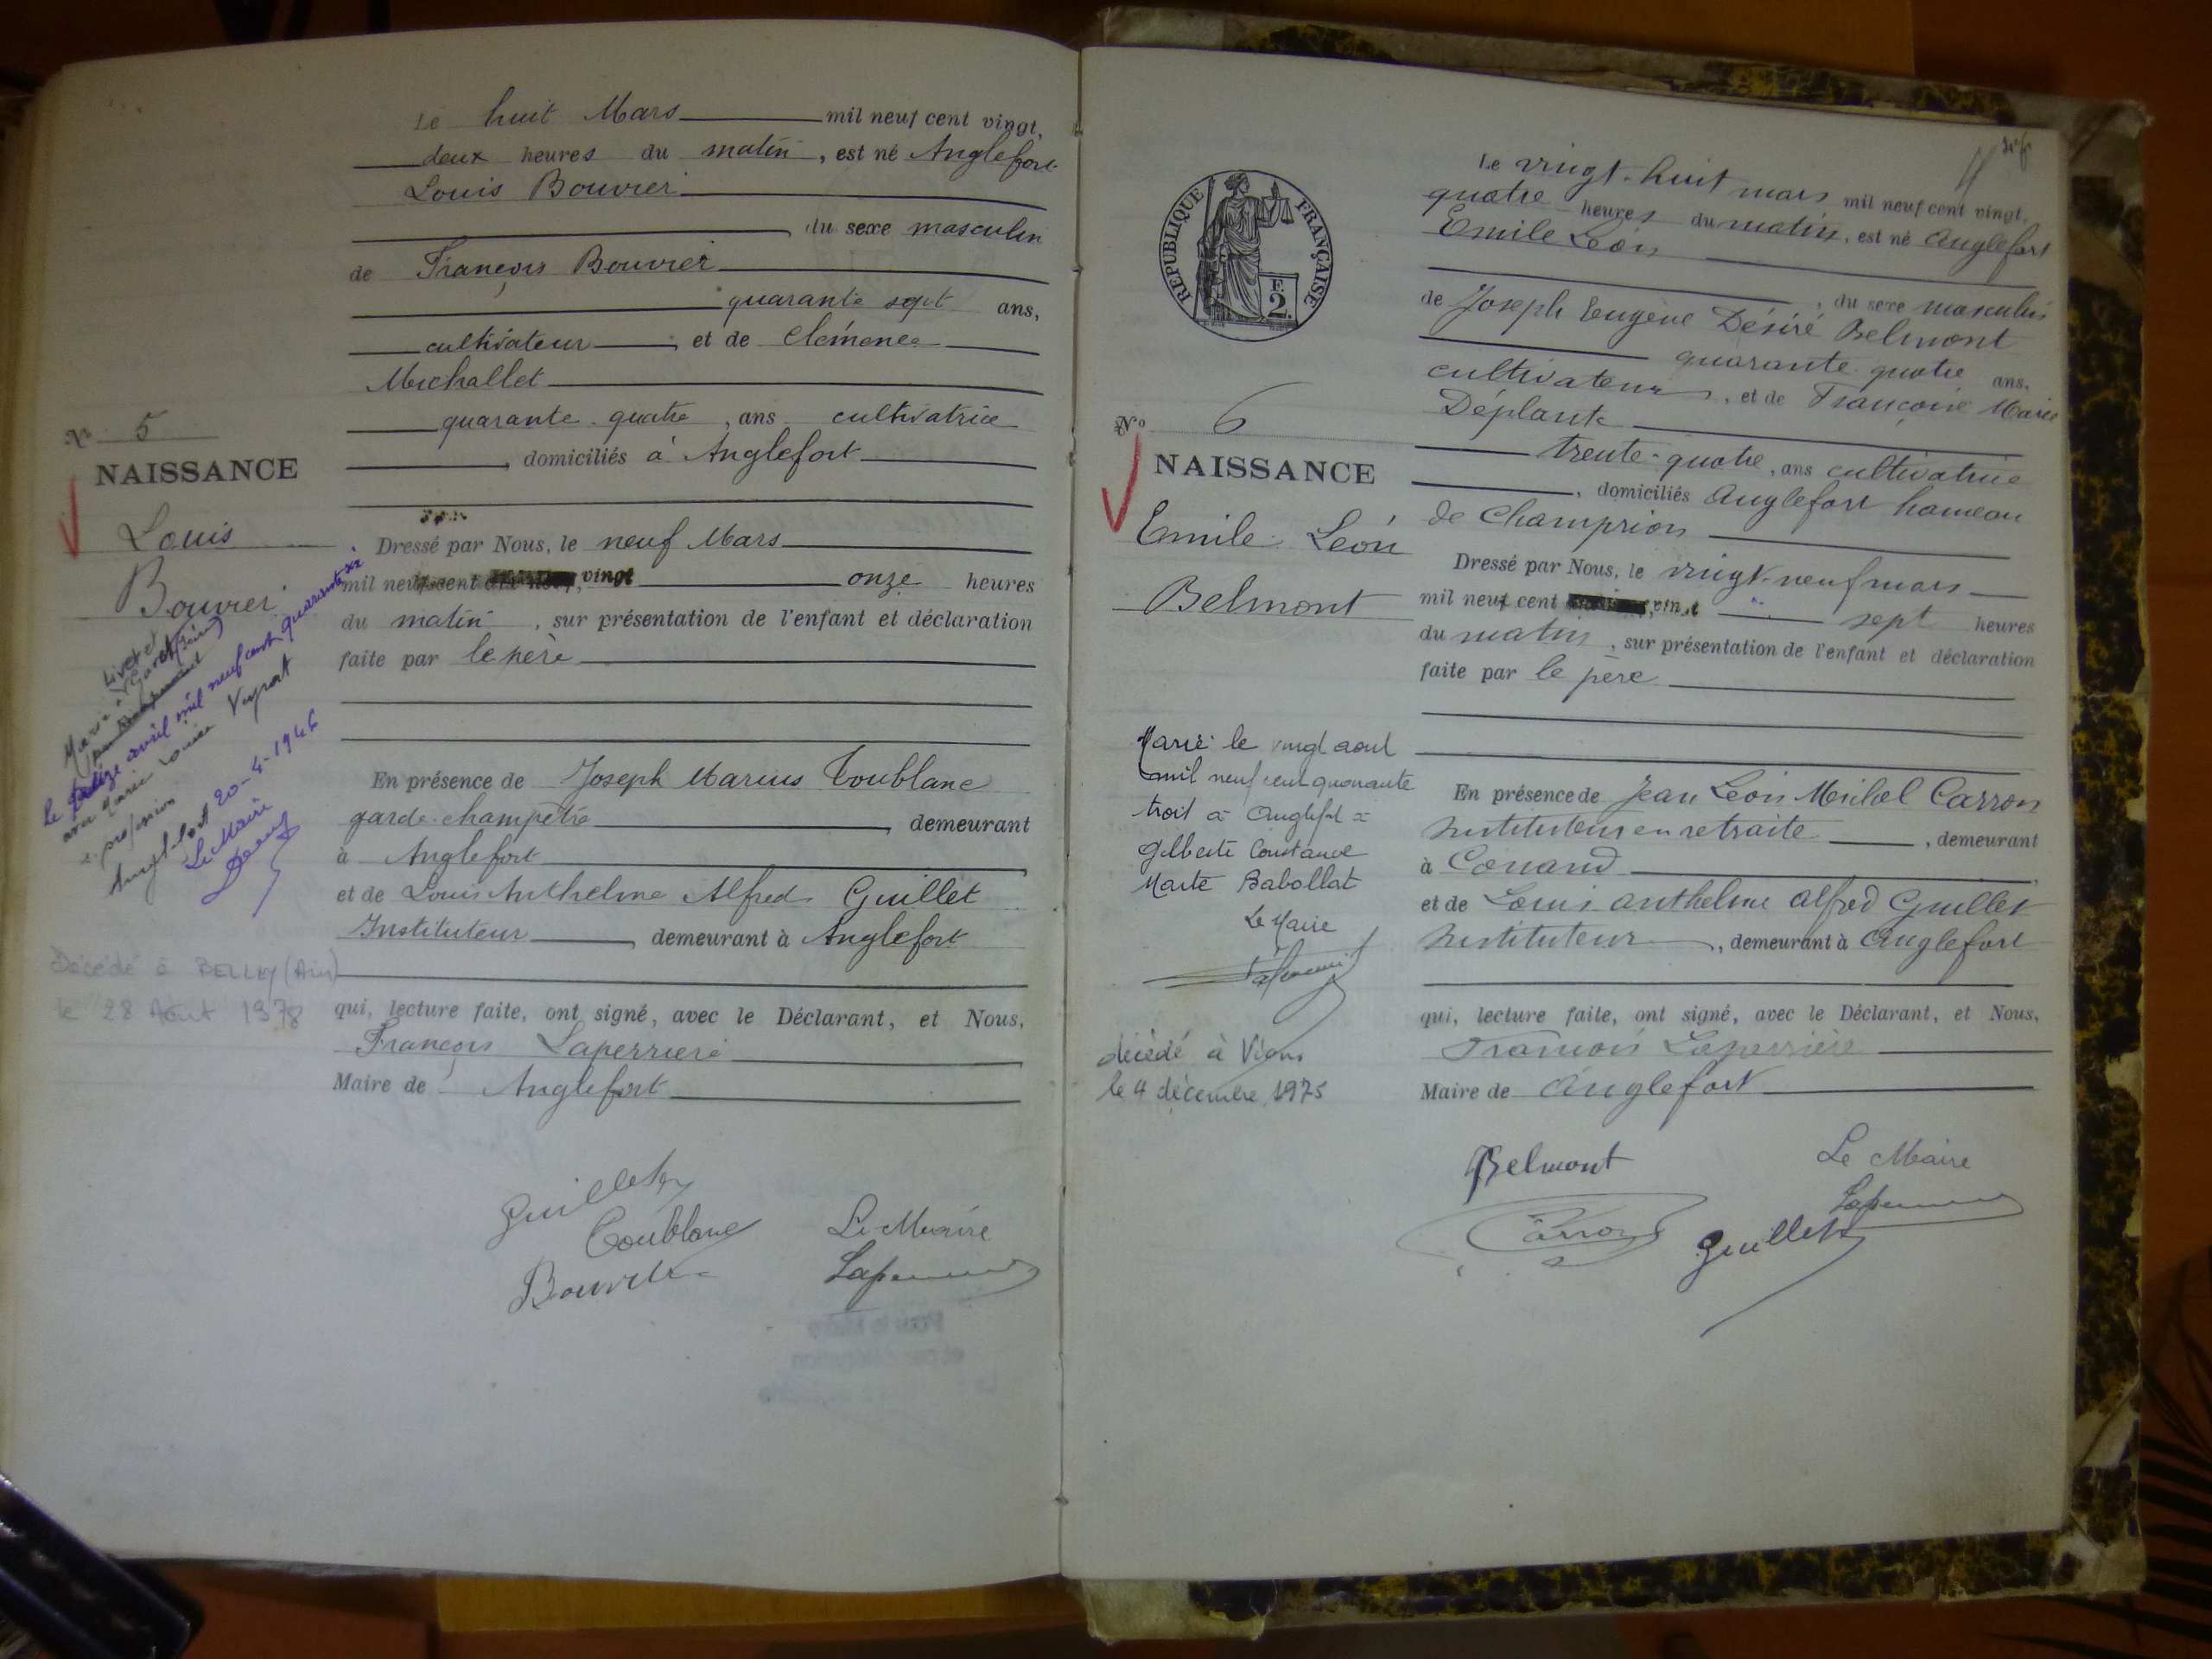 Le huit Mars mil neuf cent vingt,
deux heures du matin, est né Anglefort
Louis Bouvier
du sexe masculin
de François Bouvier
quarante sept ans,
cultivateur, et de Clémence
Michallet
quarante quatre, ans cultivatrice
, domiciliés à Anglefort
Dressé par Nous, le neuf Mars
mil neuf cent vingt onze heures
du matin, sur présentation de l'enfant et déclaration
faite par le père
En présence de Joseph Marius Toublanc
garde-champêtre, demeurant
à Anglefort
et de Louis Anthelme Alfred Guillet
Instituteur, demeurant à Anglefort
qui, lecture faite, ont signé, avec le Déclarant, et Nous,
François Laperrière
Maire de Anglefort
Guillet
Toublanc
Bouvier
Le Maire
N° 5
NAISSANCE
Louis
Bouvier
Marié à
Le avril mil neuf cent quarante six
avec Marie Louise Veyrat
s. profession
Anglefort 20-4-1946
Le Maire
Décédé à BELLEY (Ain)
le 28 Août 1978
RÉPUBLIQUE FRANÇAISE
F.
2.
N° 6
NAISSANCE
Emile Léon
Belmont
Marié le vingt aout
mil neuf cent quarante
trois à Anglefort à
Gilberte Constance
Marte Babollat
Le Maire
décédé à Vions
le 4 décembre 1975
Le vingt-huit mars mil neuf cent vingt,
quatre heures du matin, est né Anglefort
Emile Léon
, du sexe masculin
de Joseph Eugène Désiré Belmont
quarante quatre ans,
cultivateur, et de Françoise Marie
Déplante
trente-quatre, ans cultivatrice
, domiciliés Anglefort hameau
de Champrion
Dressé par Nous, le vingt-neuf mars
mil neuf cent vingt sept heures
du matin, sur présentation de l'enfant et déclaration
faite par le père
En présence de Jean Léon Michel Carron
Instituteur en retraite, demeurant
à Conand
et de Louis Anthelme Alfred Guillet
Instituteur, demeurant à Anglefort
qui, lecture faite, ont signé, avec le Déclarant, et Nous,
François Laperrière
Maire de Anglefort
Belmont
Le Maire
Carron
Guillet